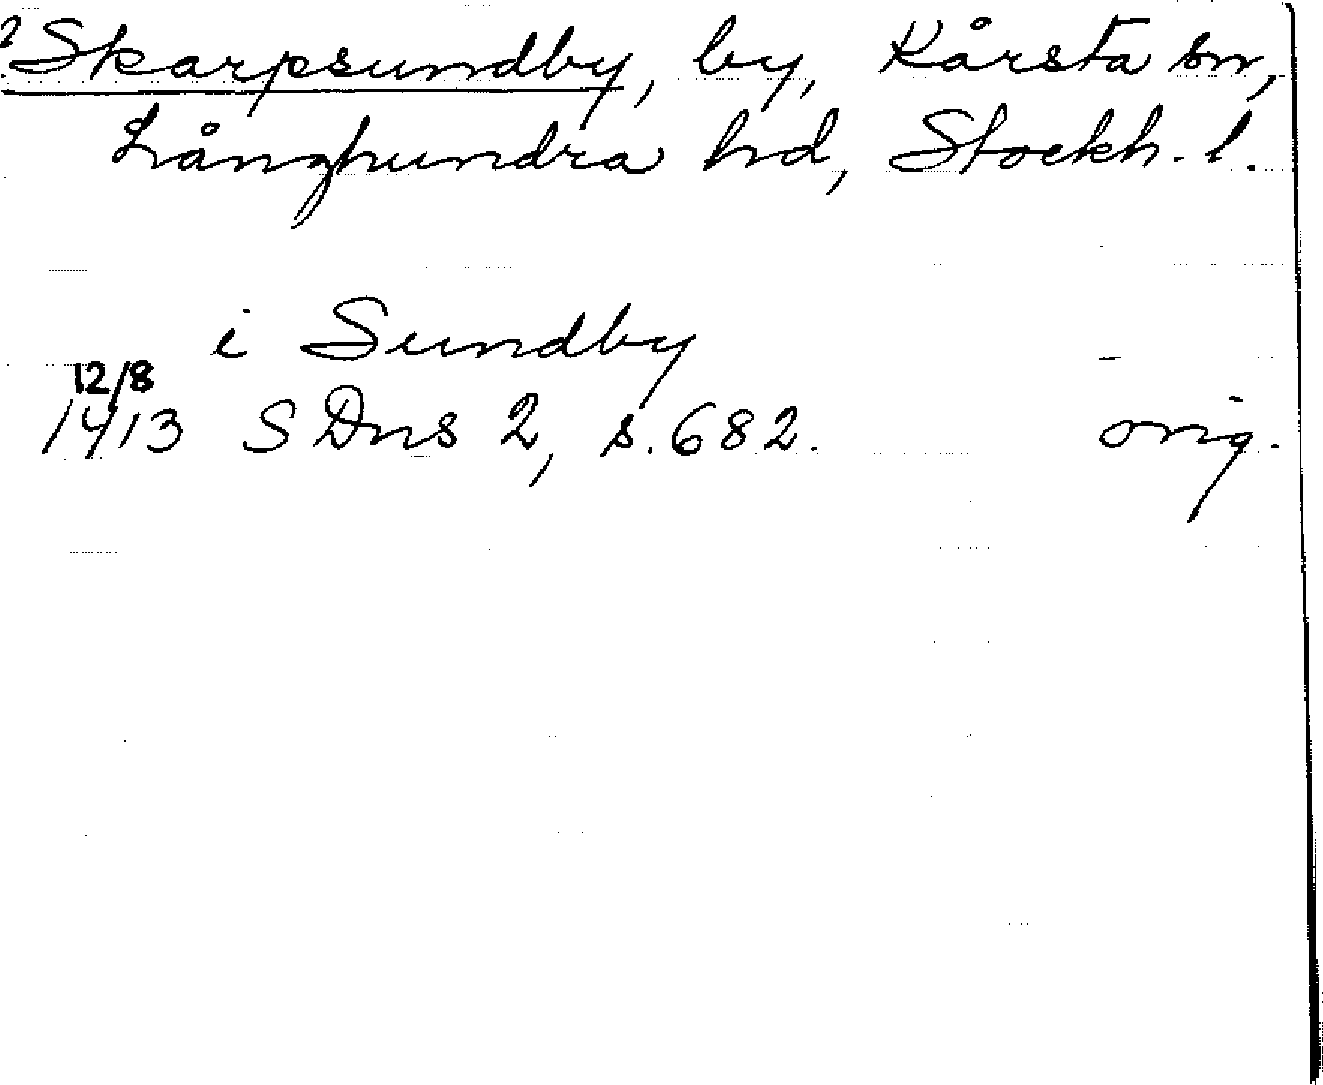 2 Skarpsundby, by, Kårsta sn,
Långhundra hd, Stockh. l.
i Sundby
12/8
1413 SDns 2, s. 682. orig.